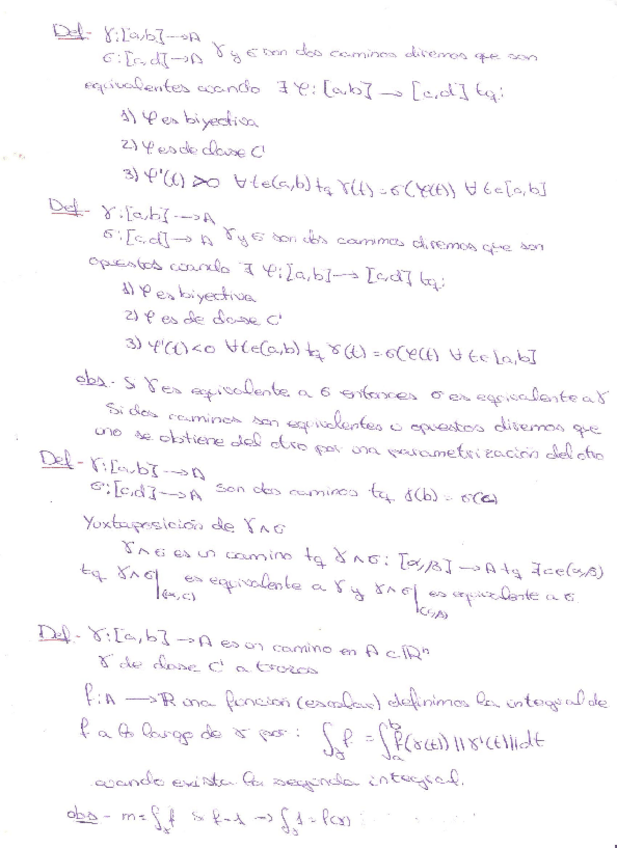 Def- γ:[a,b] → A
σ:[c,d] → A γ y σ son dos caminos diremos que son
equivalentes cuando ∃ φ:[a,b] → [c,d] tq:
1) φ es biyectiva
2) φ es de clase C¹
3) φ'(t) > 0 ∀ t ∈ (a,b) tq γ(t) = σ(φ(t)) ∀ t ∈ [a,b]
Def- γ:[a,b] → A
σ:[c,d] → A γ y σ son dos caminos diremos que son
opuestos cuando ∃ φ:[a,b] → [c,d] tq:
1) φ es biyectiva
2) φ es de clase C¹
3) φ'(t) < 0 ∀ t ∈ (a,b) tq γ(t) = σ(φ(t) ∀ t ∈ [a,b]
obs- Si γ es equivalente a σ entonces σ es equivalente a γ
Si dos caminos son equivalentes u opuestos diremos que
uno se obtiene del otro por una parametrización del otro
Def- γ:[a,b] → A
σ:[c,d] → A son dos caminos tq γ(b) = σ(c)
Yuxtaposición de γ∧σ
γ∧σ es un camino tq γ∧σ: [α,β] → A tq ∃ c ∈ (α,β)
tq γ∧σ|(α,c) es equivalente a γ y γ∧σ|(c,β) es equivalente a σ
Def- γ:[a,b] → A es un camino en A ⊂ ℝⁿ
γ de clase C¹ a trozos
f: A → ℝ una función (escalar) definimos la integral de
f a lo largo de γ por: ∫_γ f = ∫_a^b f(γ(t)) ||γ'(t)|| dt
cuando exista la segunda integral.
obs- m = ∫_γ f si f=1 → ∫_γ 1 = l(γ)